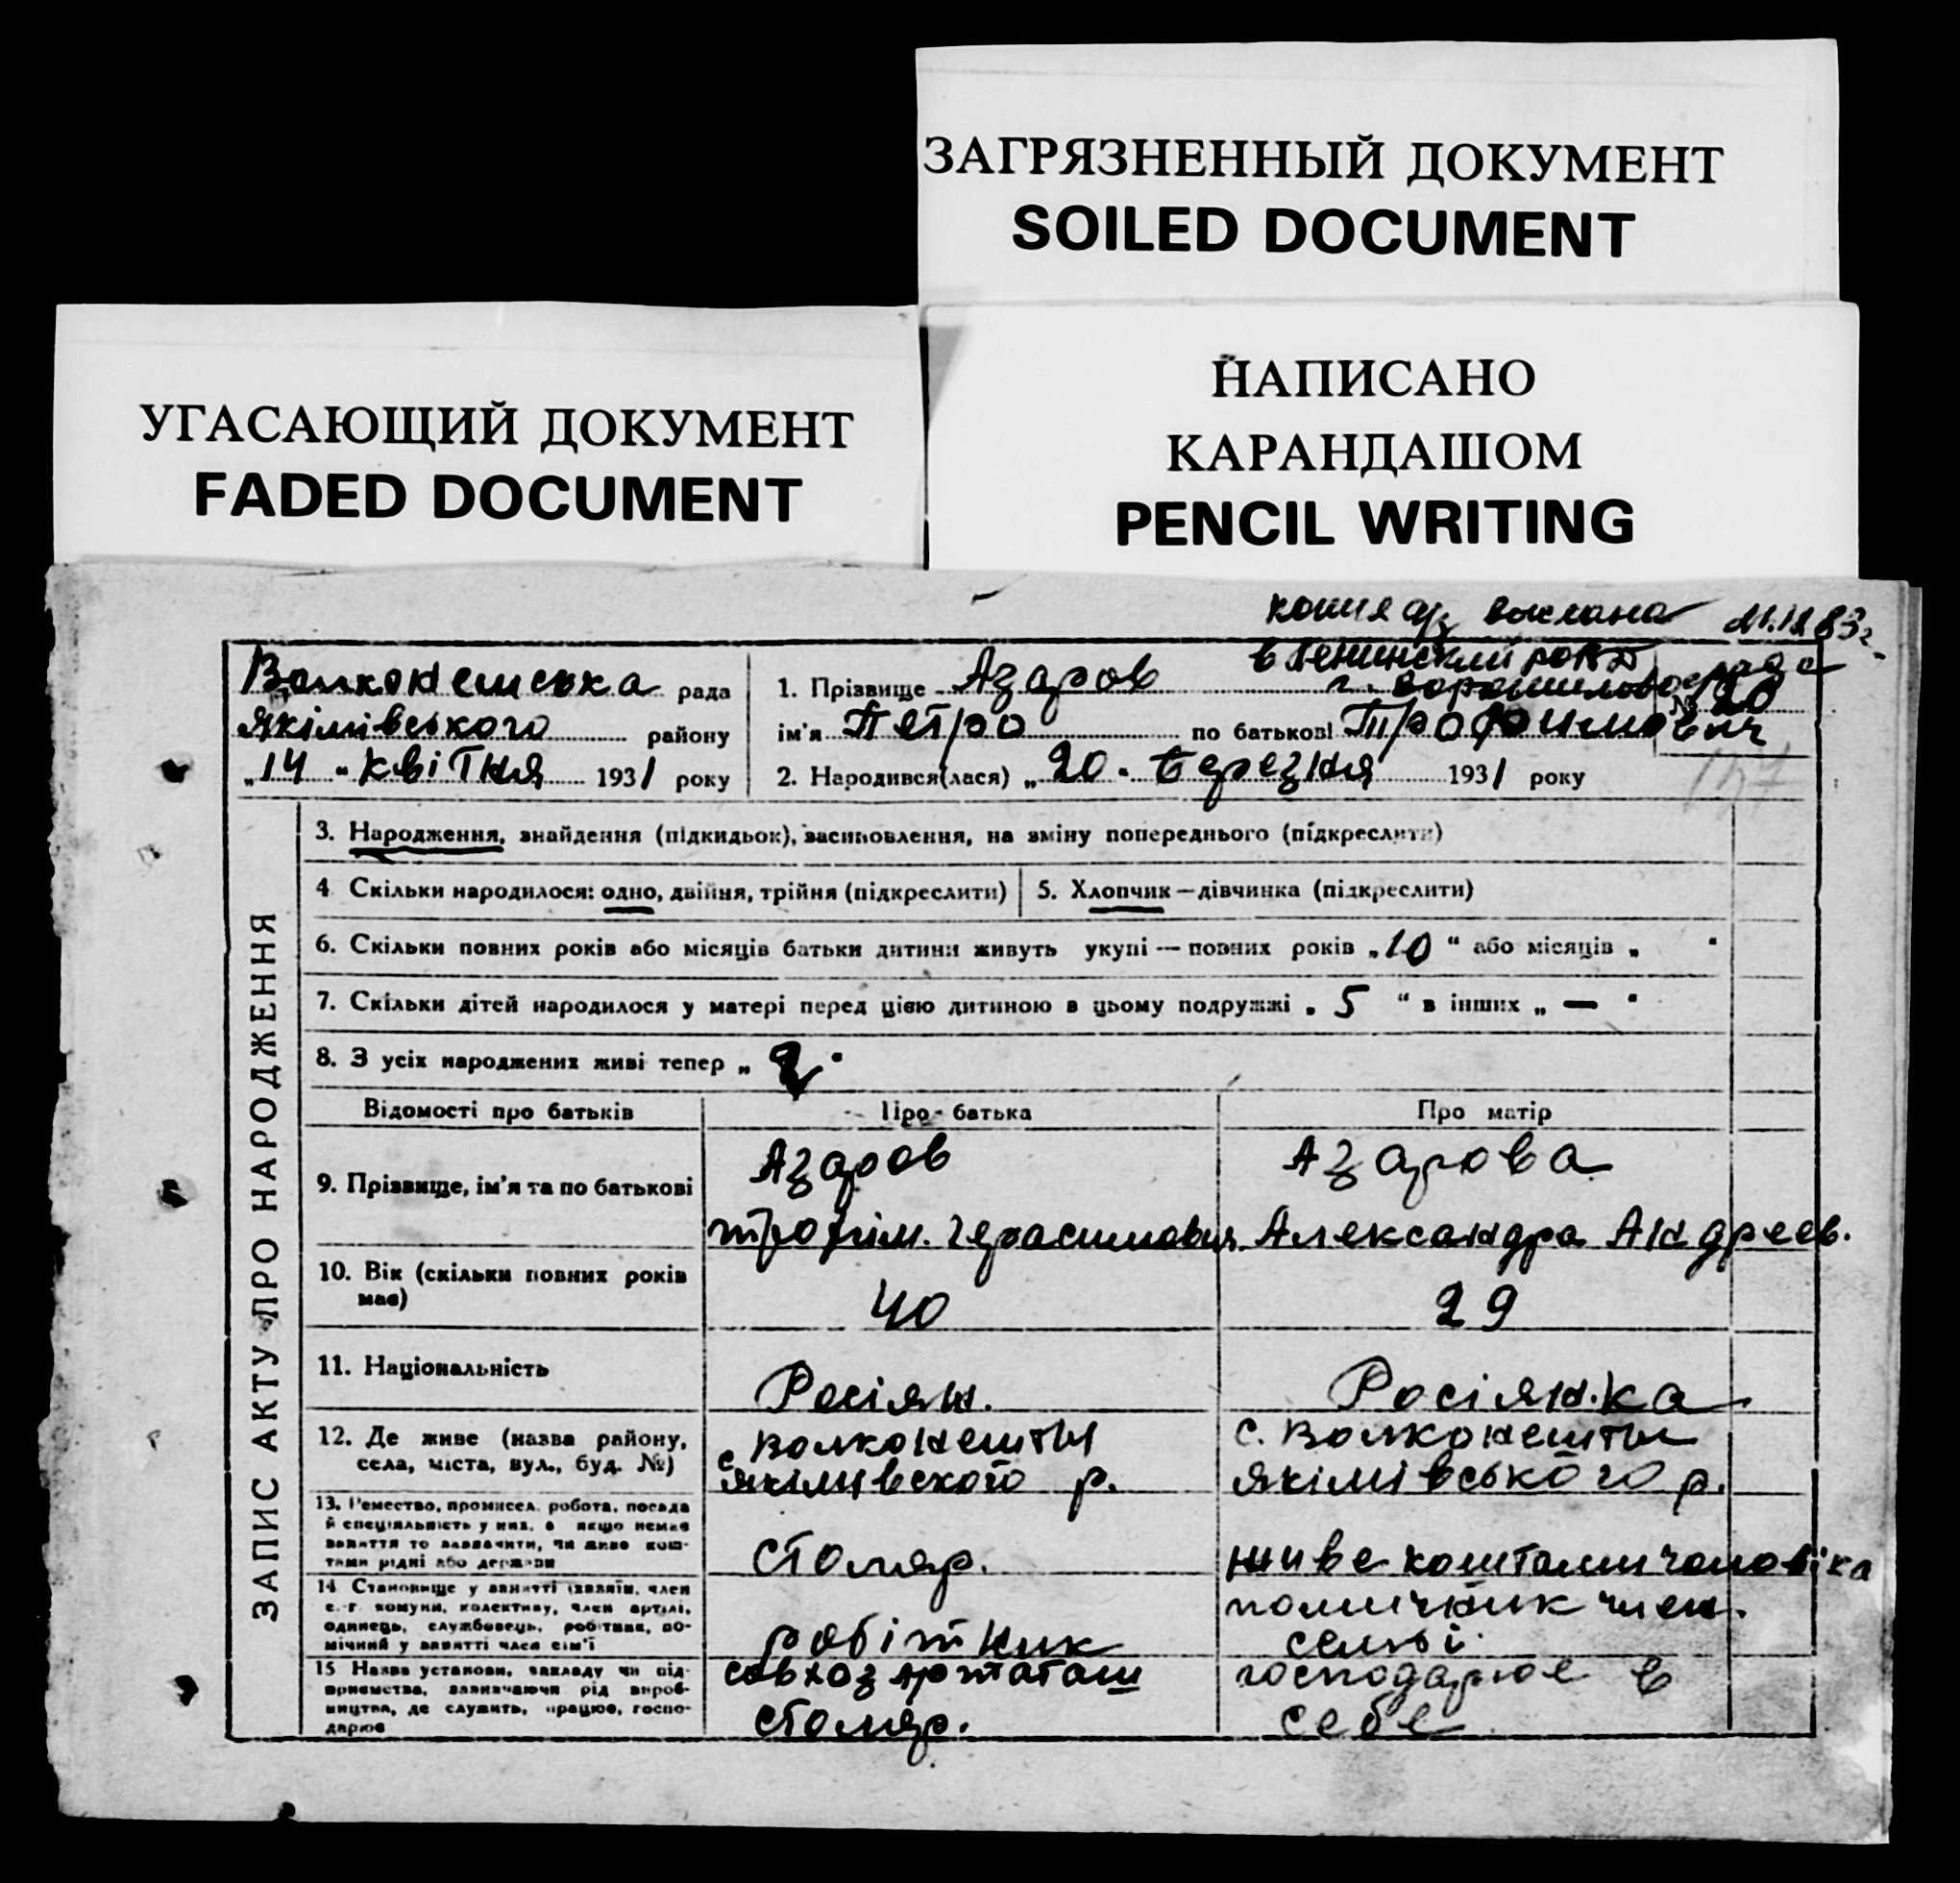 ЗАГРЯЗНЕННЫЙ ДОКУМЕНТ
SOILED DOCUMENT
УГАСАЮЩИЙ ДОКУМЕНТ
FADED DOCUMENT
НАПИСАНО
КАРАНДАШОМ
PENCIL WRITING
копия выслана 83г
в Ленинский
г. Ворошиловограда
рада
Якімівського району
„14" квітня 1931 року
1. Прізвище Азаров № 20
ім'я Петро по батькові Трофимович
2. Народився(лася) „20" березня 1931 року
ЗАПИС АКТУ ПРО НАРОДЖЕННЯ
3. Народження, знайдення (підкидьок), засиновлення, на зміну попереднього (підкреслити)
4 Скільки народилося: одно, двійня, трійня (підкреслити)
5. Хлопчик — дівчинка (підкреслити)
6. Скільки повних років або місяців батьки дитини живуть укупі — повних років „10" або місяців „ "
7. Скільки дітей народилося у матері перед цією дитиною в цьому подружжі „5" в інших „—"
8. З усіх народжених живі тепер „2"
Відомості про батьків
Про батька
Про матір
9. Прізвище, ім'я та по батькові
Азаров
Трофім. Герасимович
Азарова
Александра Андреев.
10. Вік (скільки повних років має)
40
29
11. Національність
Росіян.
Росіянка
12. Де живе (назва району,
села, міста, вул., буд. №)
с. Волконешты
Якімівского р.
с. Волконешты
Якімівського р.
13. Ремество, промисел, робота, посада
й спеціяльність у них, а якщо немає
заняття то зазначити, чи живе кош-
тами рідні або держави
столяр.
живе коштами чоловіка
14 Становище у занятті (хазяїн, член
с.-г. комуни, колективу, член артілі,
одинець, службовець, робітник, по-
мічний у занятті член сім'ї
робітник
помічник член.
семьї.
15 Назва установи, закладу чи під-
приємства, зазначаючи рід вироб-
ництва, де служить, працює, госпо-
дарює
совхоз
столяр.
господарює в
себе